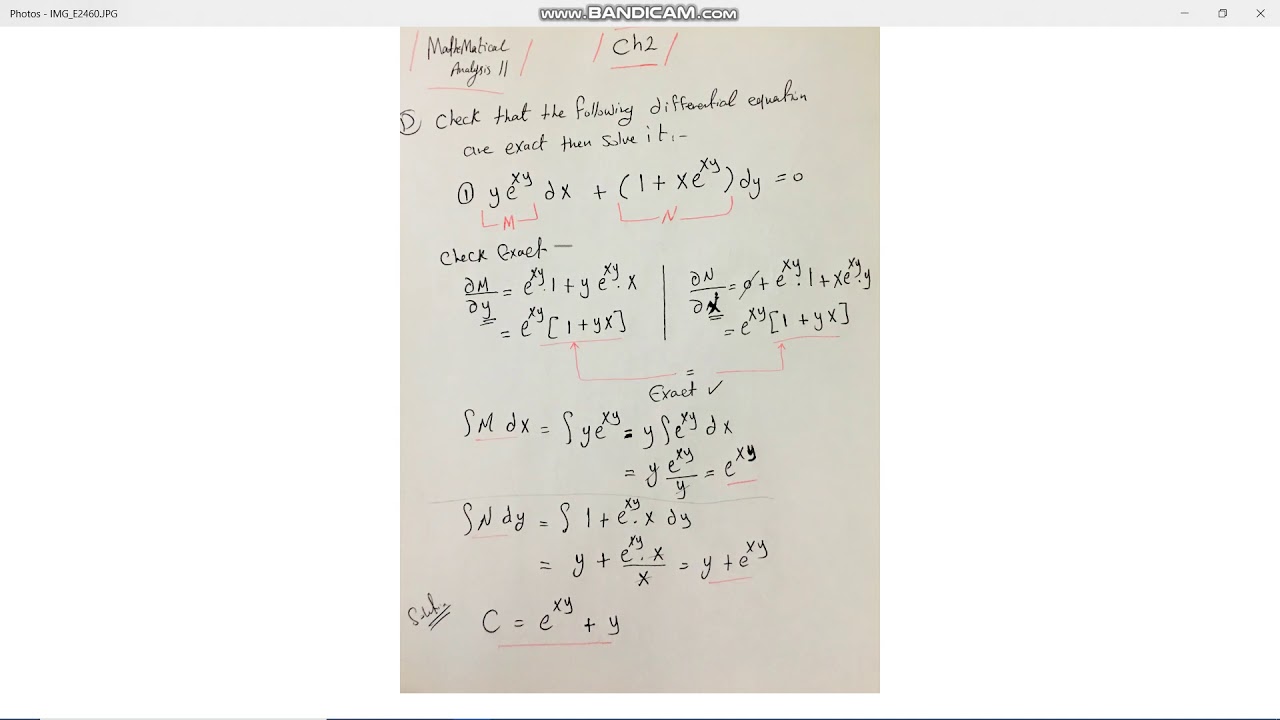 Photos - IMG_E2460.JPG
www.BANDICAM.com
Mathematical
Analysis II
Ch2
Check that the following differential equation
are exact then solve it:-
① ye^xy dx + (1 + xe^xy) dy = 0
M N
Check Exact —
∂M/∂y = e^xy · 1 + y e^xy · x
= e^xy [1 + yx]
∂N/∂x = 0 + e^xy · 1 + xe^xy · y
= e^xy [1 + yx]
=
Exact ✓
∫M dx = ∫ye^xy = y∫e^xy dx
= y e^xy/y = e^xy
∫N dy = ∫ 1 + e^xy · x dy
= y + e^xy · x/x = y + e^xy
C = e^xy + y